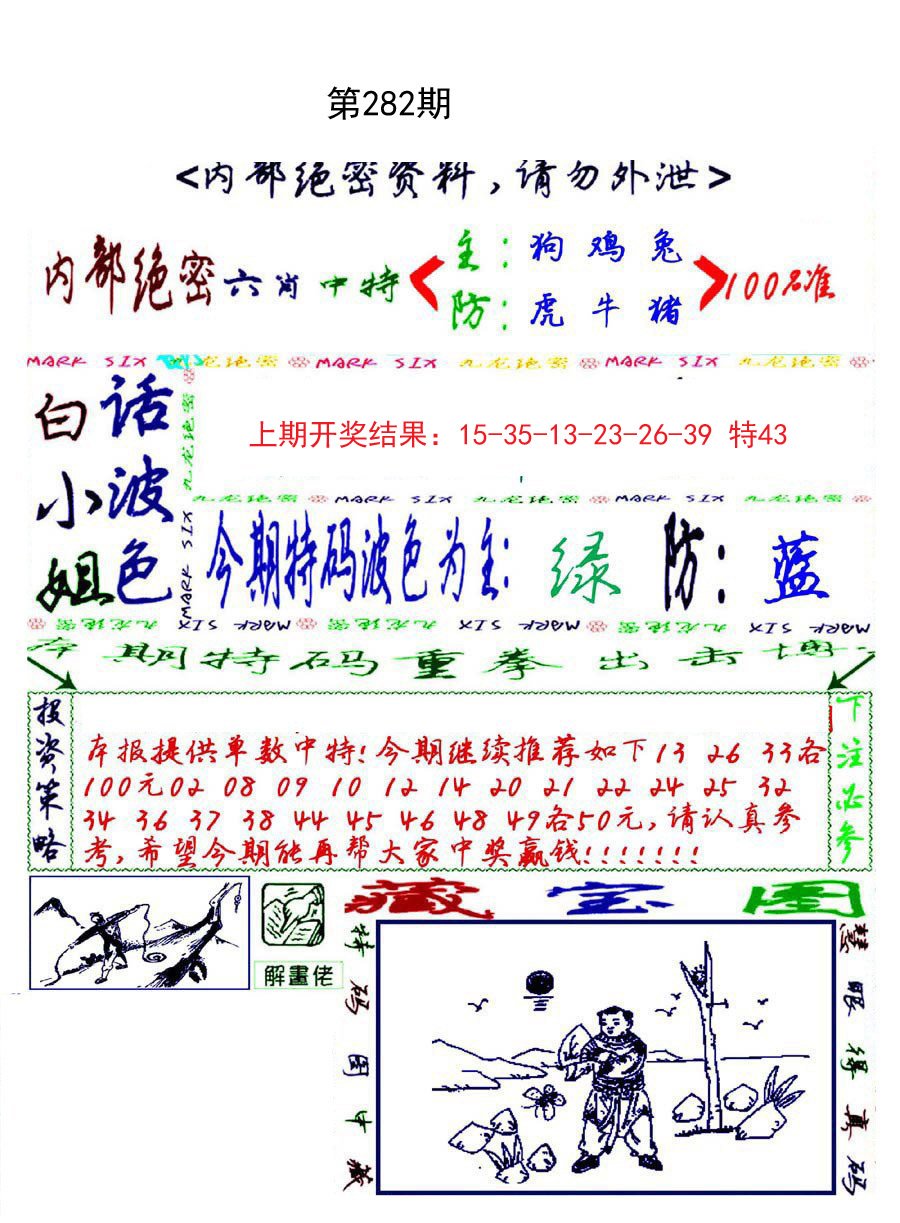 第282期
<内部绝密资料，请勿外泄>
内部绝密六肖中特
主：狗 鸡 兔
防：虎 牛 猪
100%准
MARK SIX 九龙绝密 MARK SIX 九龙绝密 MARK SIX 九龙绝密
白话
小波
姐色
九龙绝密
MARK SIX
上期开奖结果：15-35-13-23-26-39 特43
九龙绝密 MARK SIX 九龙绝密 MARK SIX 九龙绝密
今期特码波色为主：绿 防：蓝
九龙绝密 MARK SIX 九龙绝密 MARK SIX 九龙绝密 MARK SIX
本期特码重拳出击
投资策略
本报提供单数中特！今期继续推荐如下13 26 33各
100元02 08 09 10 12 14 20 21 22 24 25 32
34 36 37 38 44 45 46 48 49各50元，请认真参
考，希望今期能再帮大家中奖赢钱！！！！！！！
下注必参
解畫佬
藏宝图
特码图中藏
慧眼得真码